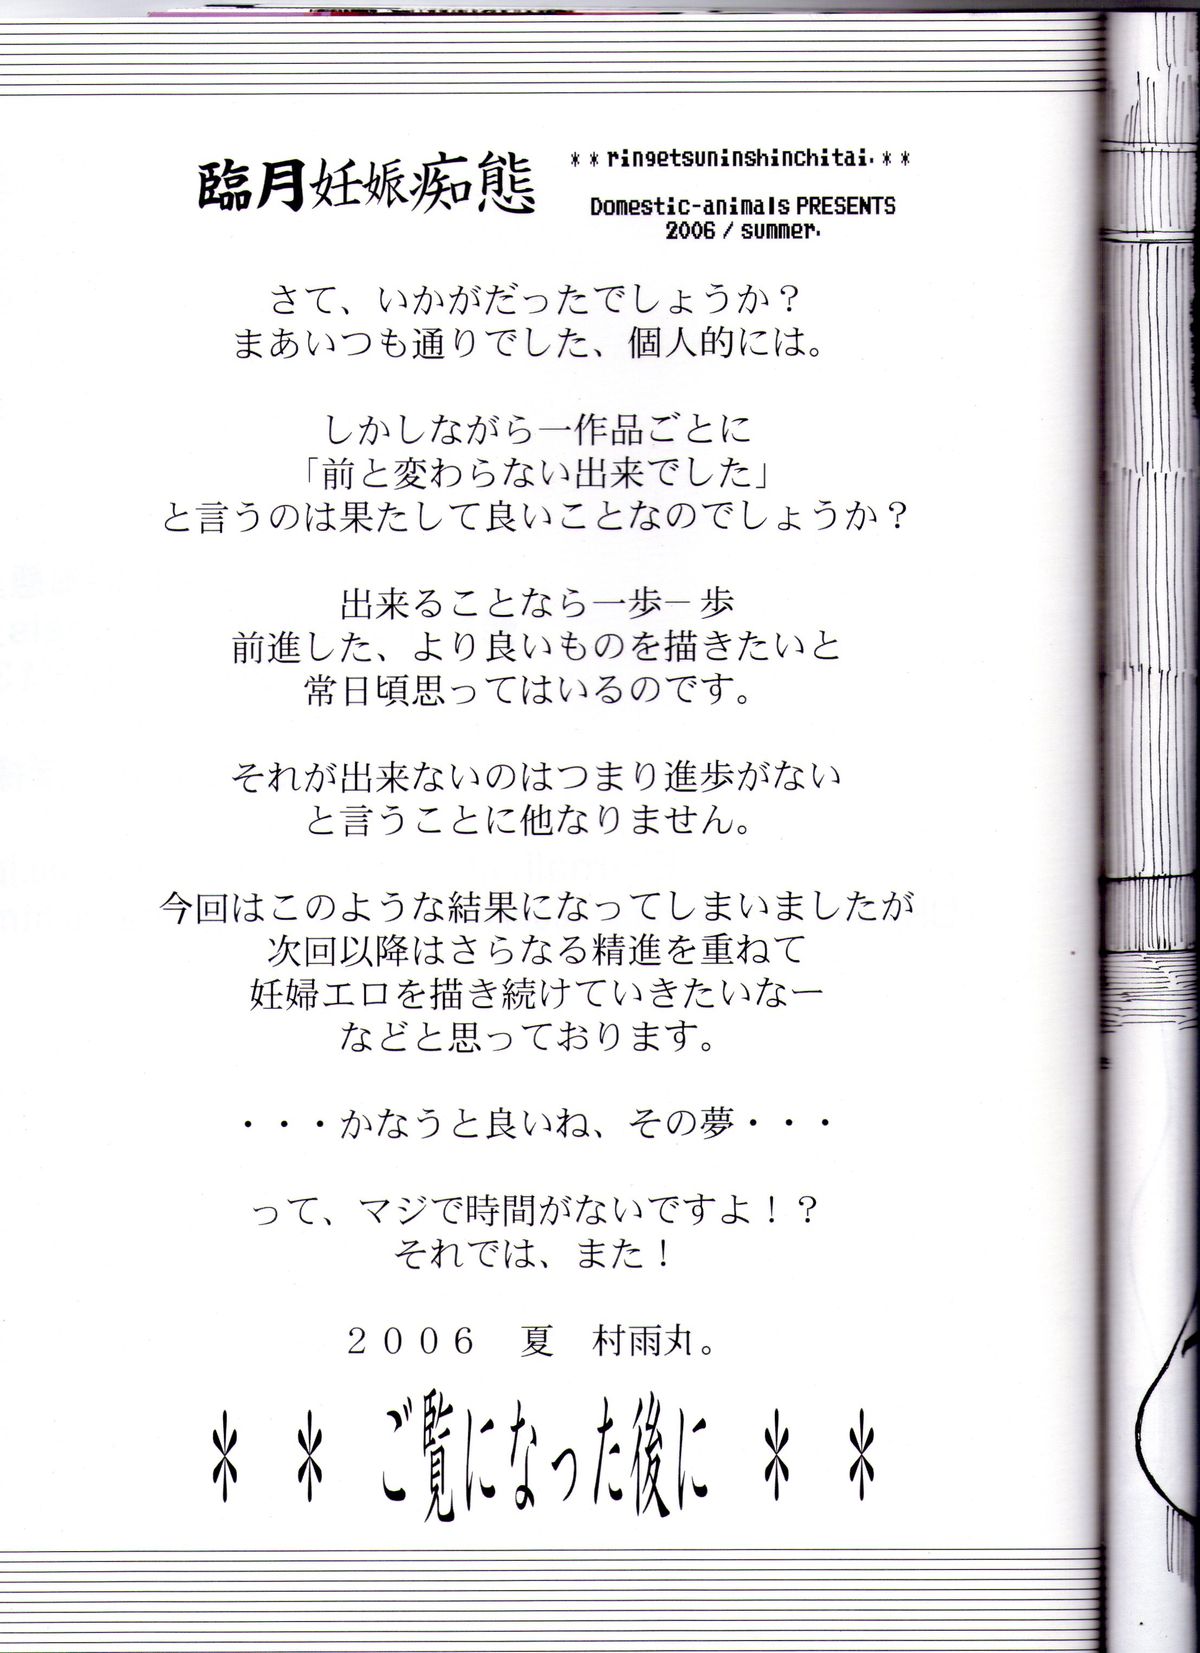 臨月妊娠痴態
＊＊ringetsuninshinchitai.＊＊
Domestic-animals PRESENTS
2006 / summer.
さて、いかがだったでしょうか？
まあいつも通りでした、個人的には。
しかしながら一作品ごとに
「前と変わらない出来でした」
と言うのは果たして良いことなのでしょうか？
出来ることなら一歩−歩
前進した、より良いものを描きたいと
常日頃思ってはいるのです。
それが出来ないのはつまり進歩がない
と言うことに他なりません。
今回はこのような結果になってしまいましたが
次回以降はさらなる精進を重ねて
妊婦エロを描き続けていきたいなー
などと思っております。
・・・かなうと良いね、その夢・・・
って、マジで時間がないですよ！？
それでは、また！
２００６　夏　村雨丸。
＊　＊　ご覧になった後に　＊　＊